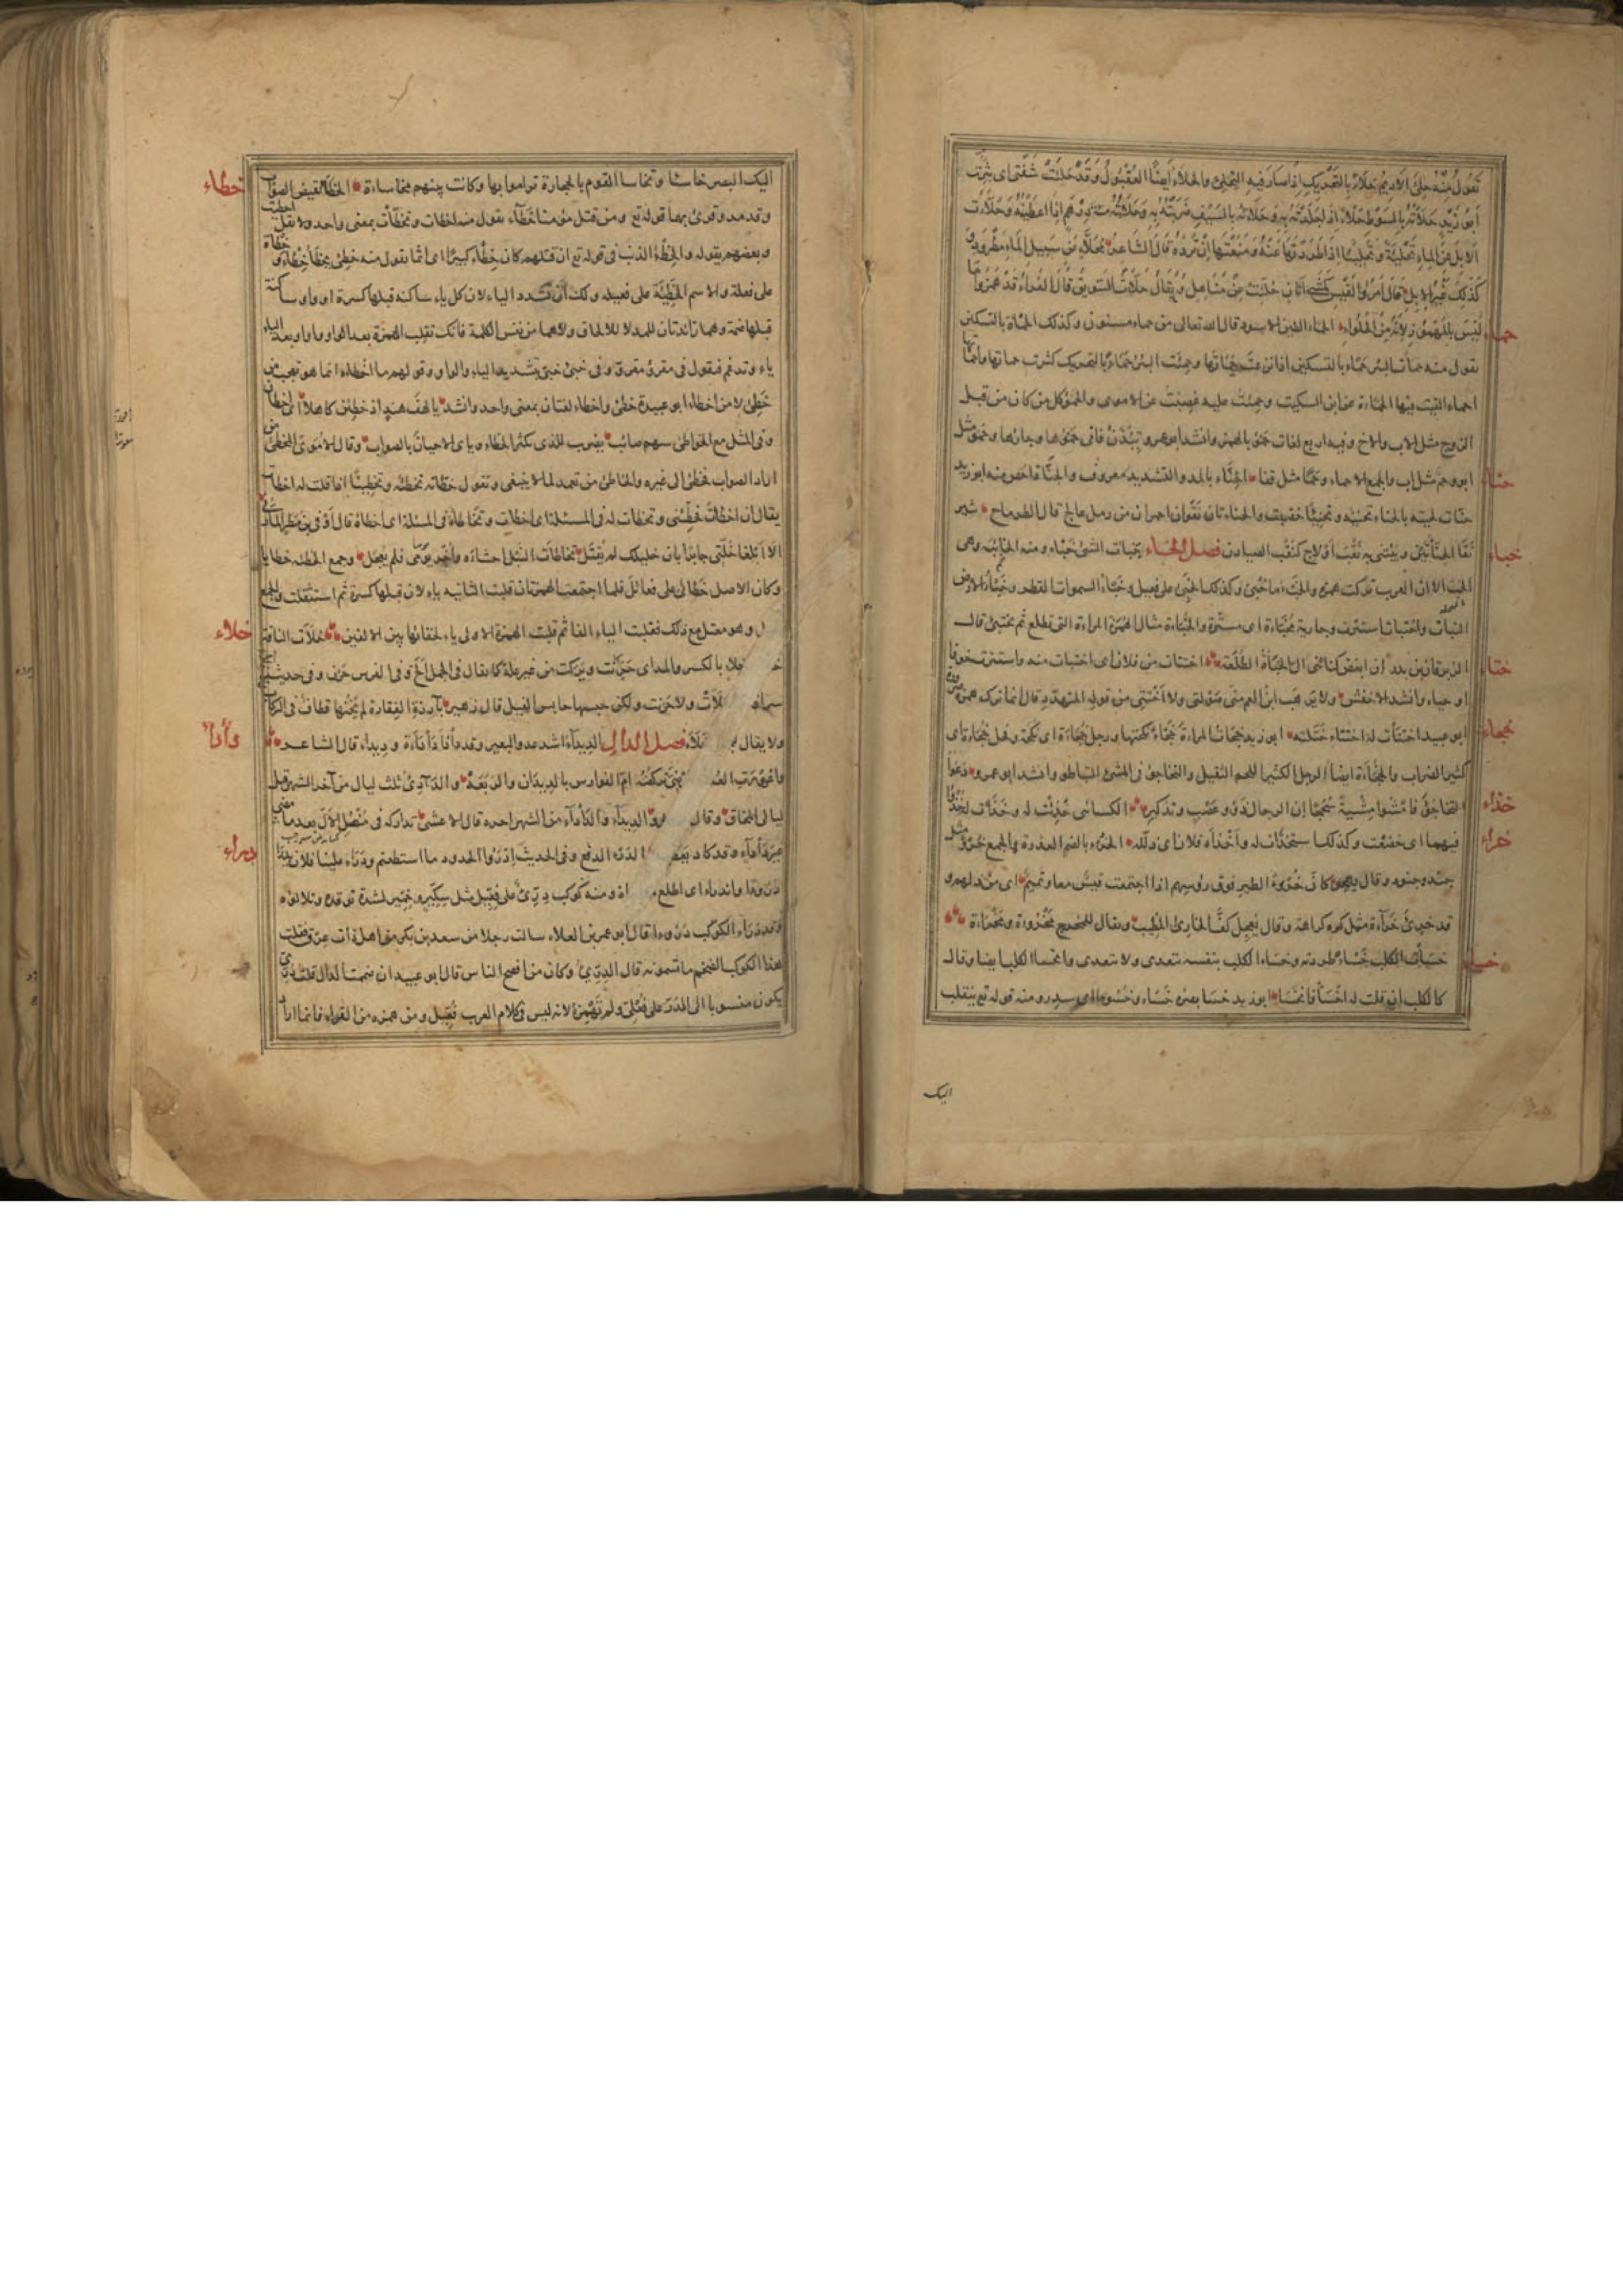 تقول منه حلئ الاديم حلأ بالتحريك اذا صار فيه التحلئ والحلأ ايضا العقبول وقد حلئت شفتى اى بثرت
ابو زيد حلأته بالسوط حلأ اذا جلدته به وحلأته بالسيف ضربته به وحلأته مئة درهم اذا اعطيته وحلأت
الابل عن الماء تحلئة وتحليئا اذا طردتها عنه ومنعتها ان ترده قال الشاعر محلأ عن سبيل الماء مطرود
كذلك غير الابل قال امرؤ القيس كمشى اتان حلئت عن مناهل ويقال حلأت السويق قال الفراء قد همزوا ما
ليس بالمهموز لانه من الحلواء الحمأ الطين الاسود قال الله تعالى من حماء مسنون وكذلك الحمأة بالتسكين
حماء
تقول منه حمأت البئر حمأ بالتسكين اذا نزعت حمأتها وحمئت البئر حمأ بالتحريك كثرت حماتها
احماء القيت فيها الحمأة عن ابن السكيت وحمئت عليه غضبت عن الاموى والحمؤ كل من كان من قبل
الزوج مثل الاب والاخ وفيه اربع لغات حمؤ بالهمز وانشد ابو عمرو تئذن فانى حمؤها وجارها وحمو مثل
ابو وحم مثل اب والجمع الاحماء وحما مثل قفا الحناء بالمد والتشديد معروف والحناة اخص منه ابو زيد
حناء
حنأت لحيته بالحناء تحنئة وتحنيئا خضبت والحناءتان نقوان احمران من رمل عالج قال الطرماح يثير
نقا الحناءتين ويبتنى به نقب اولاج كنقب الصيادن فصل الخاء خبأت الشئ خبأ ومنه الخابية وهى
خباء
الحب الا ان العرب تركت همزه والخبء ما خبئ وكذلك الخبئ على فعيل وخبء السموات القطر وخبء الارض
النبات واختبات استترت وجارية مخبأة اى مستترة والخبأة مثال الهمزة المراءة التى تطلع ثم تختبئ قال
الزبرقان بن بدر ان ابغض كنائنى الى الخبأة الطلعة اختتات من فلان اى اختبات منه واستترت خوفا
ختاء
او حياء وانشد الاخفش ولا يرهب ابن العم منى صولتى ولا اختتى من قوله المتهدد قال انما ترك همزه
ابو عبيد اختتأت له اختتاء ختلته ابو زيد خجأت المراءة خجأ نكحتها ورجل خجأة اى نكحة وفحل خجأة اى
خجاء
كثير الضراب والخجأة ايضا الرجل الكثير اللحم الثقيل والتخاجؤ فى المشى التباطؤ وانشد ابو عمرو دعوا
التخاجؤ وامشوا مشية سجحا ان الرجال ذوو عصب وتذكير الكسائى خذئت له وخذأت له خذوا
خذاء
فيهما اى خضعت وكذلك استخذأت له واخذأه فلان اى ذلله الخرء بالضم العذرة والجمع خروء مثل
خراء
جند وجنود وقال يهجو كان خروء الطير فوق رؤسهم اذا اجتمعت قيس معا وتميم اى من ذلهم و
قد خرئ خراءة مثل كره كراهة وقال يعجل كف الخارئ المطيب ويقال للمخرج مخروءة ومخرأة
خسأت الكلب خسأ طردته وخسأ الكلب بنفسه يتعدى ولا يتعدى وانخسأ الكلب ايضا وقال
خساء
كالكلب ان قلت له اخسأ فانخسأ ابو زيد خسأ بصره خسأ وخسوءا اى سدر ومنه قوله تع ينقلب
اليك
اليك البصر خاسئا وتخاسا القوم بالحجارة تراموا بها وكانت بينهم مخاساءة الخطأ نقيض الصواب
خطاء
وقد مد وقرئ بهما قوله تع ومن قتل مؤمنا خطأ تقول منه اخطات وتخطأت بمعنى واحد ولا تقل اخطيت
وبعضهم يقوله والخطء الذنب فى قوله تع ان قتلهم كان خطأ كبيرا اى اثما تقول منه خطئ يخطأ خطأ وخطأة
على فعلة والاسم الخطيئة على فعيله ولك ان تشدد الياء لان كل ياء ساكنه قبلها كسرة او واو ساكنة
قبلها ضمة وهما زائدتان للمد لا للالحاق ولا هما من نفس الكلمة فانك تقلب الهمزة بعد الواو واوا وبعد الياء
ياء وتدغم فتقول فى مقروء مقرو وفى خبئ خبى بتشديد الياء والواو وقولهم ما اخطاه انما هو تعجب من
خطئ لا من اخطاء ابو عبيدة خطئ واخطاء لغتان بمعنى واحد وانشد يا لهف هند اذ خطئن كاهلا اى اخطان
وفى المثل مع الخواطئ سهم صائب يضرب للذى يكثر الخطاء وياتى الاحيان بالصواب وقال الاموى المخطئ من
اراد الصواب فخطئ الى غيره والخاطئ من تعمد لما لا ينبغى وتقول خطاته تخطئة وتخطيئا اذا قلت له اخطات
يقال ان اخطات فخطئنى وتخطات له فى المسئلة اى اخطات وتخاطأه فى المسئلة اى اخطاه قال اوفى بن مطر المازنى
الا ابلغا خلتى جابرا بان خليلك لم يقتل تخاطأت النبل احشاءه واخر يومى فلم يعجل وجمع الخطئه خطايا
وكان الاصل خطائئ على فعائل فلما اجتمعت الهمزتان قلبت الثانيه ياء لان قبلها كسرة ثم استثقلت والجمع
ل وهو معتل مع ذلك فقلبت الياء الفا ثم قلبت الهمزة الاولى ياء لخفائها بين الالفين خلأت الناقة
خلاء
خلا بالكسر والمد اى حرنت وبركت من غير علة كما يقال فى الجمل الح وفى الفرس حرن وفى حديث
سراقة لات ولا حرنت ولكن حبسها حابس الفيل قال زهير بآرزة الفقارة لم يخنها قطاف فى الركاب
ولا يقال خلأ فصل الدال الديداء اشد عدو البعير وقد دأدأ دأدأة وديداء قال الشاعر
دأدأ
واعرورت تركضه ام الفوارس بالديداء والربعة والدآدئ ثلث ليال من آخر الشهر قبل
ليالى المحاق وقال الديداء والدأداء من الشهر اخره قال الاعشى تداركه فى منصل الال بعد ما مضى
غير دأداء وقد كاد يعطب الدرء الدفع وفى الحديث ادرؤا الحدود ما استطعتم ودراء علينا فلان
دراء
دروءا واندراء اى اطلع ومنه كوكب درئ على فعيل مثل سكير وخمير لشدة توقده وتلالؤه
وقد دراء الكوكب دروءا قال ابو عمرو بن العلاء سالت رجلا من سعد بن بكر من اهل ذات عرق فقلت
هذا الكوكب الضخم ما تسمونه قال الدرئ وكان من افصح الناس قال ابو عبيد ان ضممت الدال قلت درى
يكون منسوبا الى الدر على فعلى ولم تهمزه لانه ليس فى كلام العرب فعيل ومن همزه من القراء فانما اراد